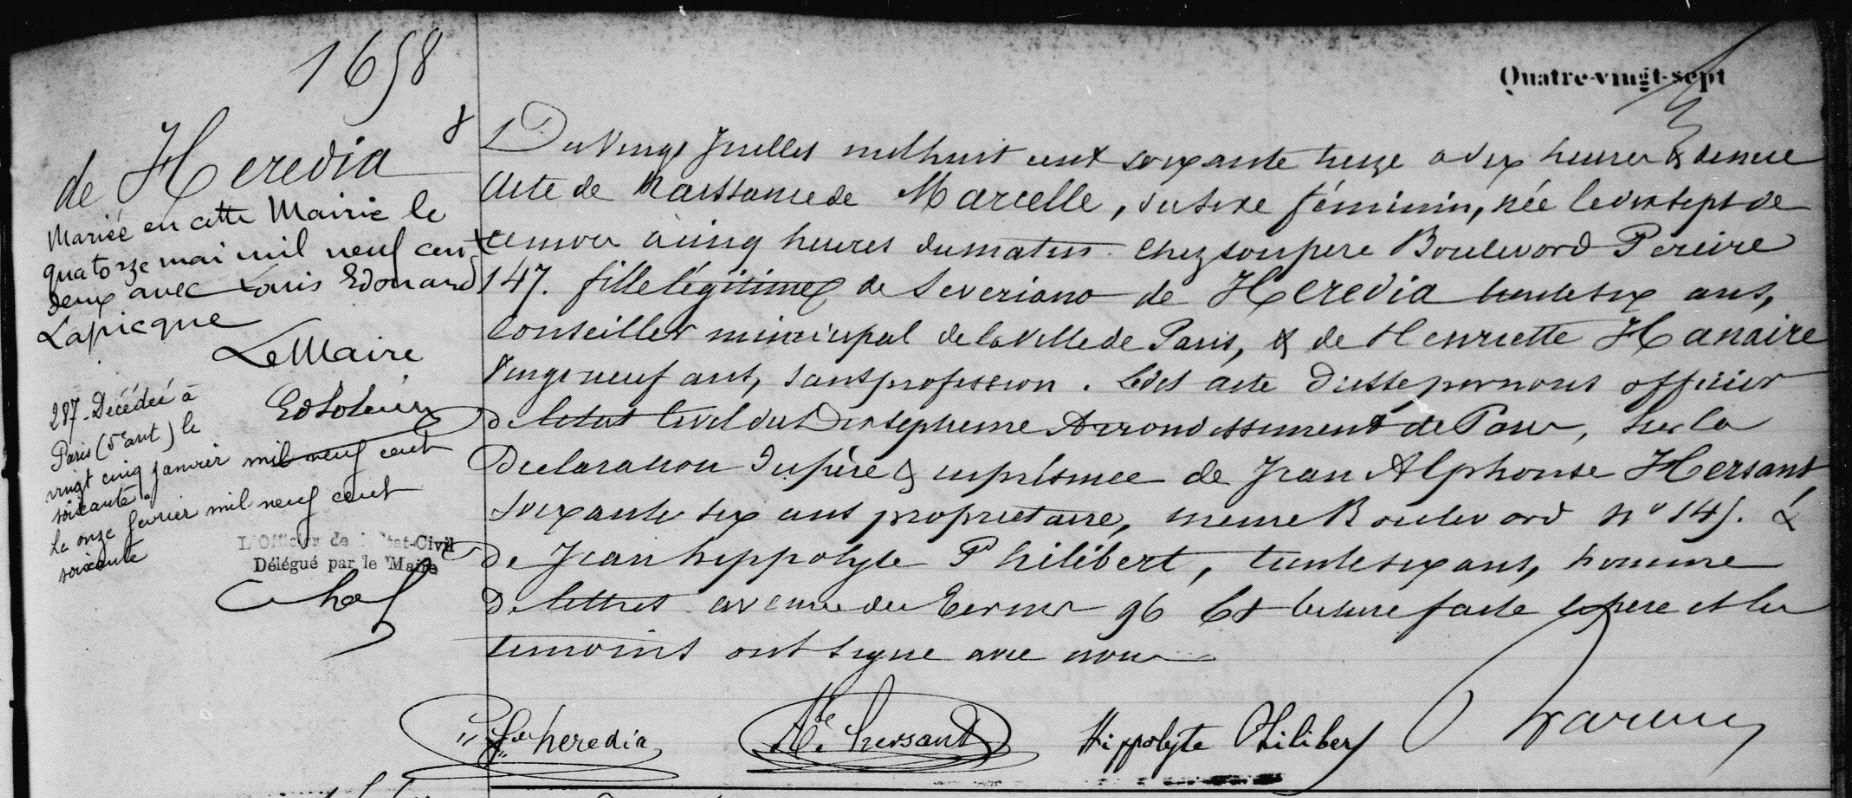 1658
Quatre-vingt-sept
8
de Heredia
Mariée en cette Mairie le
quatorze mai mil neuf cent
deux avec Louis Edouard
Lapicque
Le Maire
287. Décédée à
Paris (5e arrt) le
vingt cinq janvier mil neuf cent
soixante
Le onze fevrier mil neuf cent
soixante
L'Officier de l'Etat-Civil
Délégué par le Maire
Du Vingt Juillet mil huit cent soixante treize a dix heures & demie
Acte de Naissance de Marcelle, du sexe féminin, née le dix sept de
ce mois à cinq heures du matin chez son père Boulevard Pereire
147. fille légitime de Severiano de Heredia trente six ans,
Conseiller municipal de la Ville de Paris, & de Henriette Hanaire
Vingt neuf ans, sans profession. Ledit acte dressé par nous officier
de l'etat Civil du Dix septième Arrondissement de Paris, sur la
Déclaration du père & en présence de Jean Alphonse Hersant
soixante six ans propriétaire, même Boulevard no 145. &
de Jean hippolyte Philibert, trente six ans, homme
de lettres avenue des Ternes 96 Et lecture faite le père et les
temoins ont signé avec nous
heredia
Hersant
Hippolyte Philibert